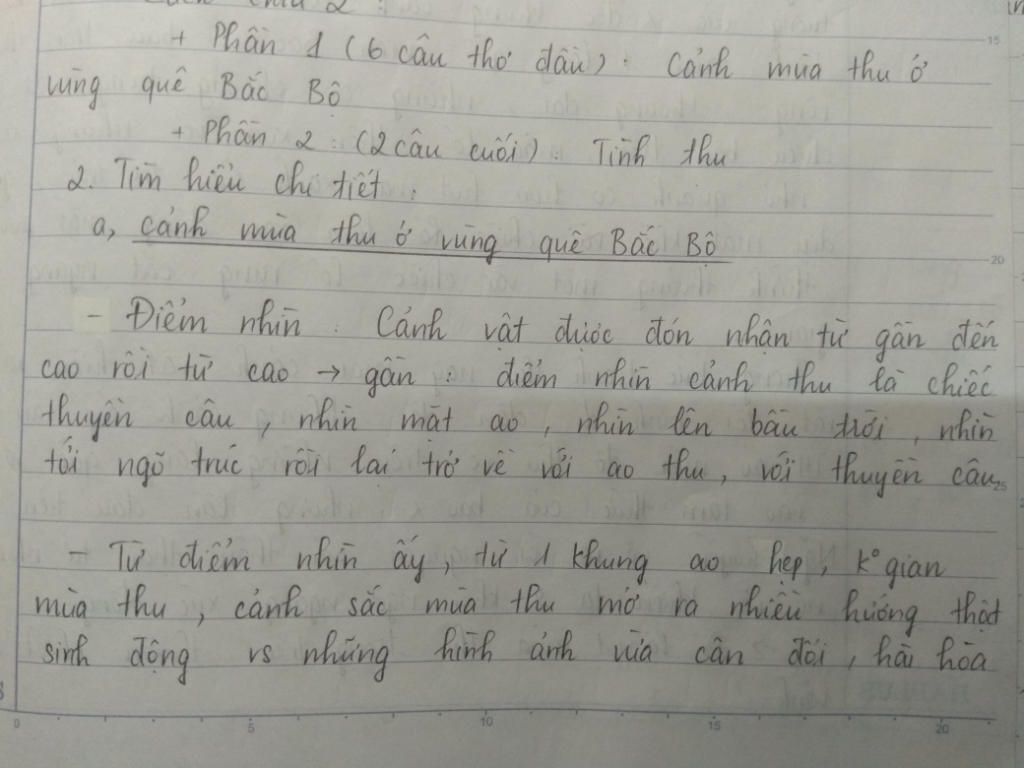 Cách chia 2 :
+ Phần 1 (6 câu thơ đầu) : Cảnh mùa thu ở
vùng quê Bắc Bộ
+ Phần 2 : (2 câu cuối) : Tình thu
2. Tìm hiểu chi tiết :
a, cảnh mùa thu ở vùng quê Bắc Bộ
- Điểm nhìn : Cảnh vật được đón nhận từ gần đến
cao rồi từ cao → gần : điểm nhìn cảnh thu là chiếc
thuyền câu, nhìn mặt ao, nhìn lên bầu trời, nhìn
tới ngõ trúc rồi lại trở về với ao thu, với thuyền câu
- Từ điểm nhìn ấy, từ 1 khung ao hẹp, k° gian
mùa thu, cảnh sắc mùa thu mở ra nhiều hướng thật
sinh động vs những hình ảnh vừa cân đối, hài hòa
15
20
25
0 5 10 15 20